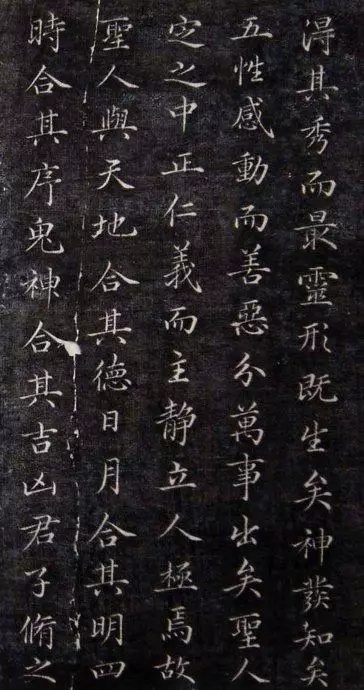 得其秀而最靈形既生矣神發知矣
五性感動而善惡分萬事出矣聖人
定之中正仁義而主静立人極焉故
聖人與天地合其德日月合其明四
時合其序鬼神合其吉凶君子脩之